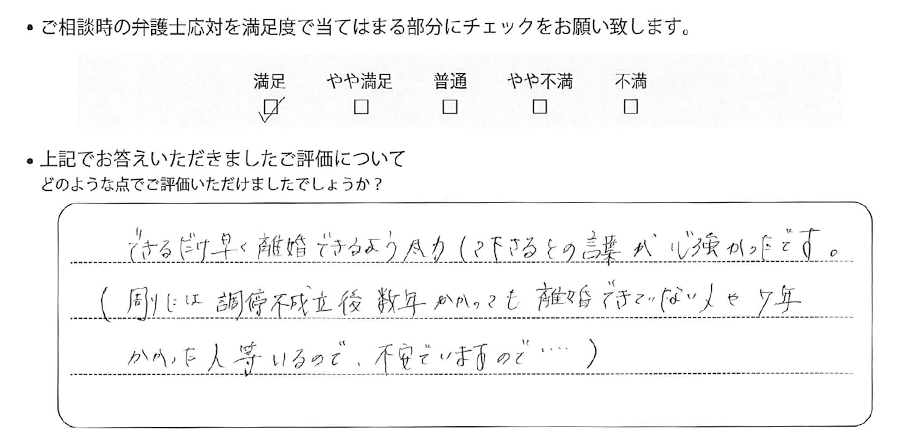 • ご相談時の弁護士応対を満足度で当てはまる部分にチェックをお願い致します。
満足 やや満足 普通 やや不満 不満
☑ □ □ □ □
• 上記でお答えいただきましたご評価について
どのような点でご評価いただけましたでしょうか？
できるだけ早く離婚できるよう尽力して下さるとの言葉が心強かったです。
(周りには調停不成立後数年かかっても離婚できていない人や7年
かかった人等いるので、不安でいますので‥‥)